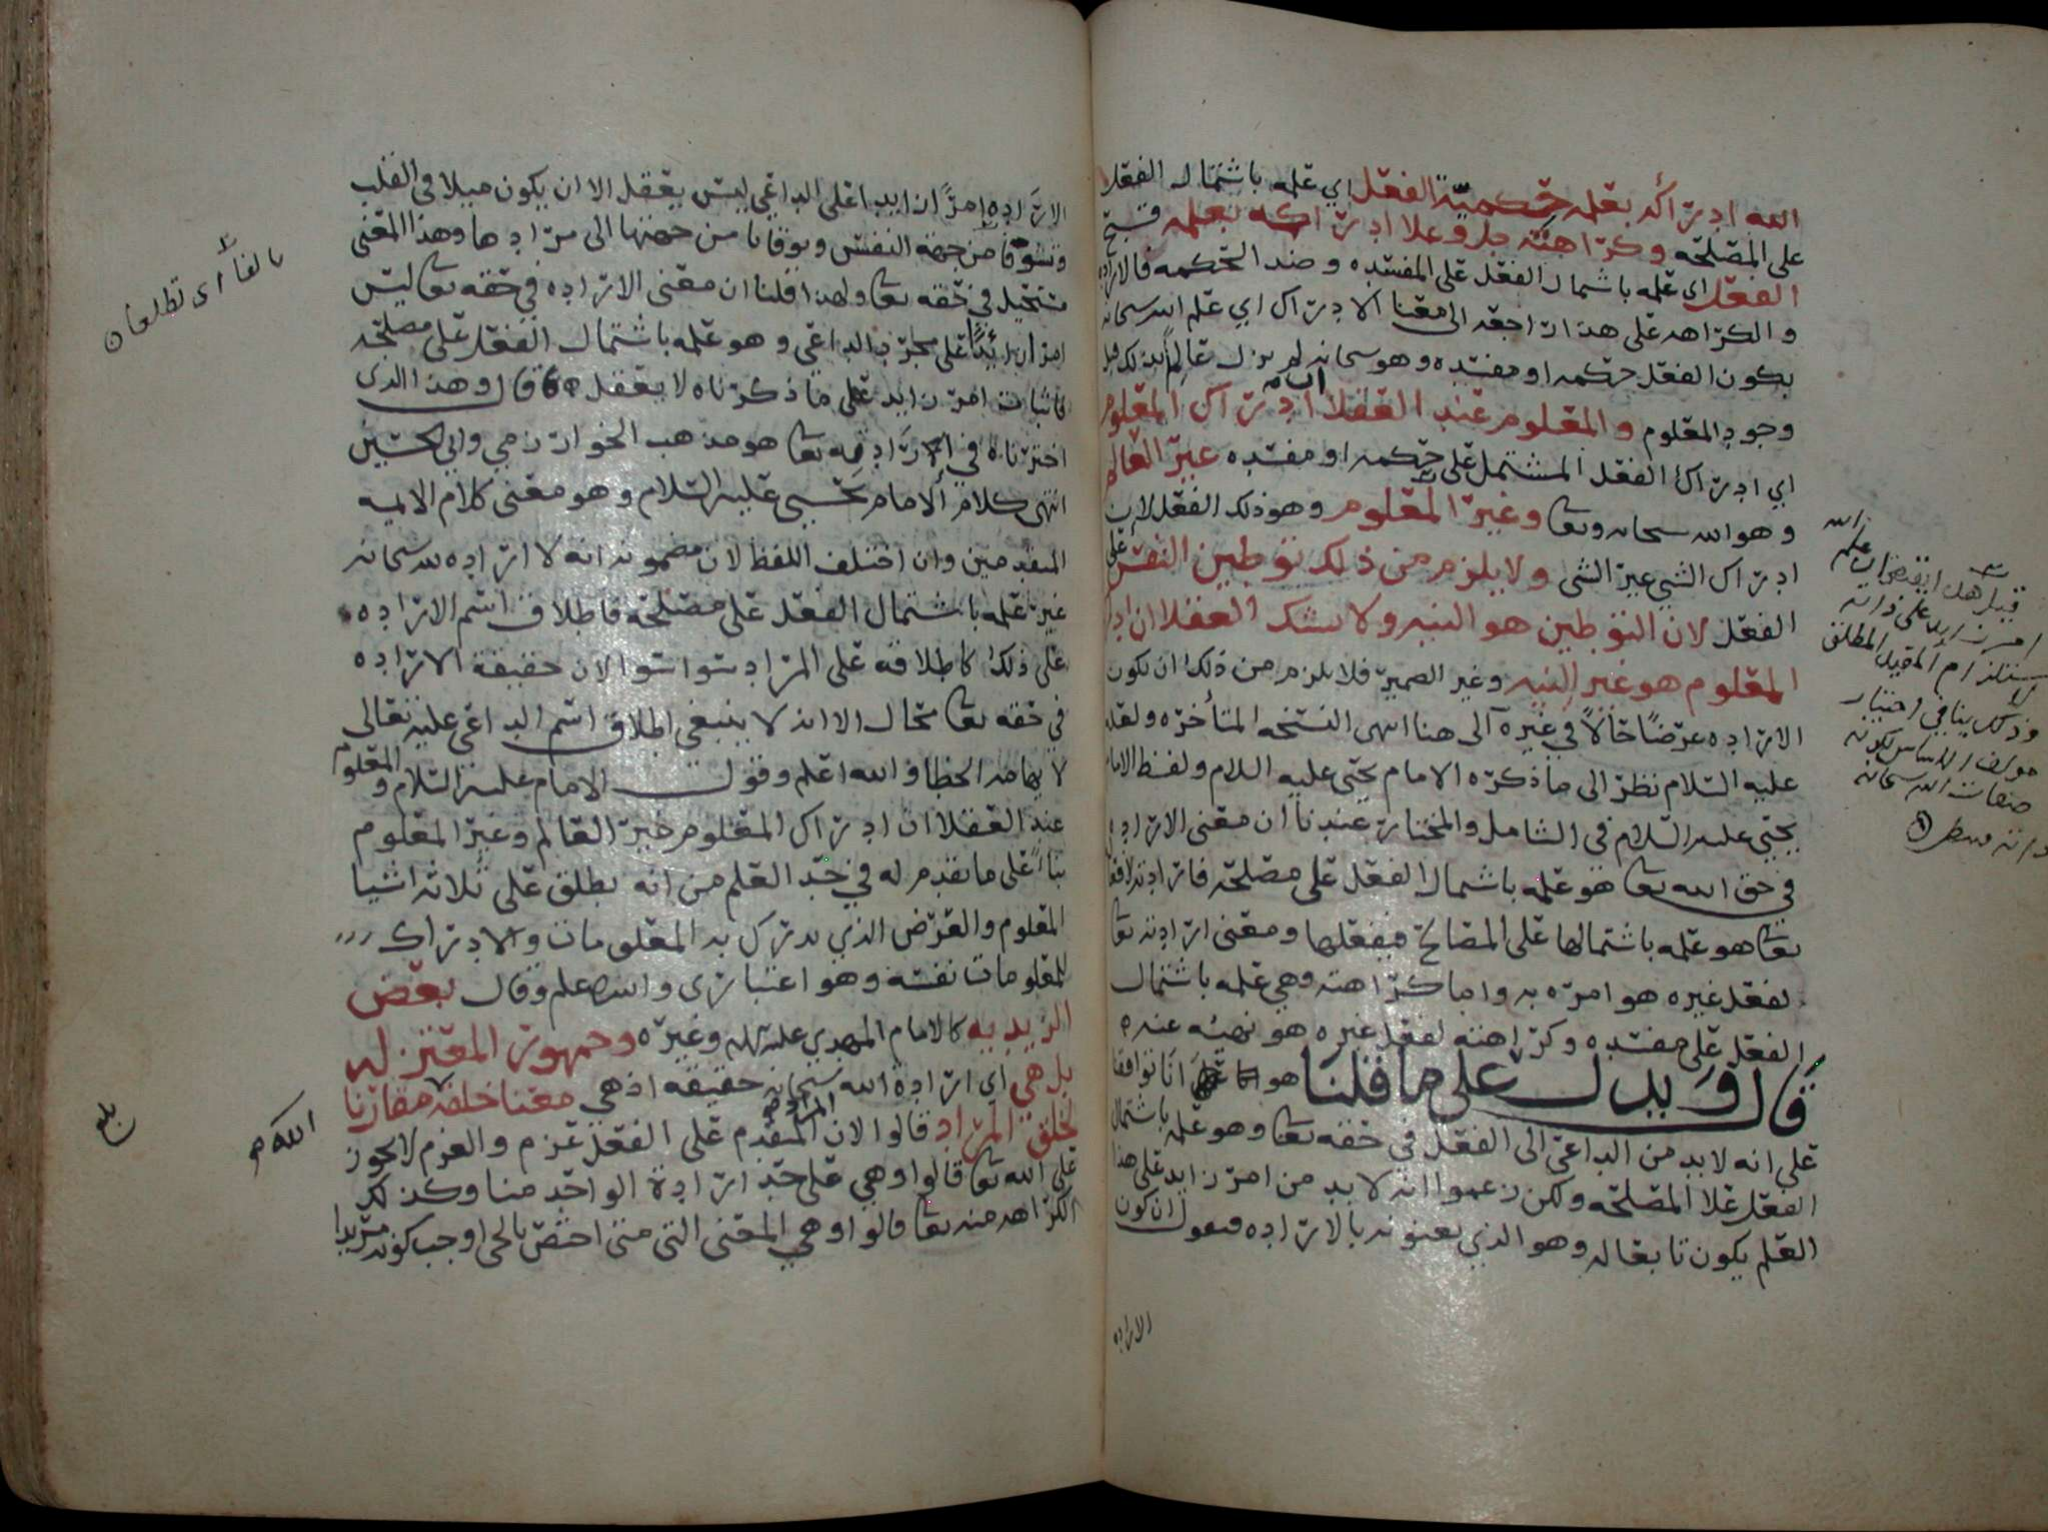 الله ادراكه بعلمه حكمية الفعل اي علمه باشتمال الفعل
على المصلحه وكراهته جل وعلا ادراكه بعلمه قبح
الفعل اى علمه باشتمال الفعل على المفسده وضد الحكمه فالاراده
والكراهه على هذا راجعه الى معنا الادراك اي علم الله سبحانه
بكون الفعل حكمه او مفسده وهو سبحانه لم يزل عالماً بذلك قبل
وجود المعلوم والمعلوم عند العقلا ان ادراك المعلوم
اي ادراك الفعل المشتمل على حكمه او مفسده غير العالم
وهو الله سبحانه وتعا وغير المعلوم وهو ذلك الفعل لان
ادراك الشي غير الشى ولا يلزم من ذلك توطين النفس على
الفعل لان التوطين هو النيه ولا يشك العقلا ان ادراك
المعلوم هو غير النيه وغير الضمير فلا يلزم من ذلك ان تكون
الاراده عرضًا حالًا في غيره الى هنا انتهى النسخه المتأخره ولعله
عليه السلام نظر الى ما ذكره الامام يحيى عليه السلام ولفظ الامام
يحيى عليه السلام في الشامل والمختار عندنا ان معنى الاراده
في حق الله تعا هو علمه باشتمال الفعل على مصلحته فارادته لافعاله
تعا هو علمه باشتمالها على المصالح فيفعلها ومعنى ارادته تعا
لفعل غيره هو امره به واما كراهته وهي علمه باشتمال
الفعل على مفسده وكراهته لفعل غيره هو نهيه عنه
قال ويدل على ما قلنا هو انا توافقنا
على انه لا بد من الداعي الى الفعل في حقه تعا وهو علمه باشتمال
الفعل على المصلحه ولكن زعموا انه لا بد من امر زايد على هذا
العلم يكون تابعا له وهو الذي يعنونه بالاراده فنقول ان كون
الاراده
قيل هل
امر زايد على ذاته
وذلك ينافي اختيار
مولف الاساس لكونه
صفات الله سبحانه
الاراده امرًا زايدا على الداعي ليس يعقل الا ان يكون ميلا في القلب
وتشوقا من جهة النفس وتوقانا من جهتها الى مرادها وهذا المعنى
مستحيل في حقه تعا ولهذا قلنا ان معنى الاراده في حقه تعا ليس
امرا زايدًا على مجرد الداعي وهو علمه باشتمال الفعل على مصلحته
فاثبات امر زايد على ما ذكرناه لا يعقل قال وهذا الذى
اخترناه في الارادة تعا هو مذهب الخوارزمي وابي الحسين
انتهى كلام الامام يحيى عليه السلام وهو معنى كلام الايمه
المتقدمين وان اختلف اللفظ لان مضمونه انه لا اراده لله سبحانه
غير علمه باشتمال الفعل على مصلحة فاطلاق اسم الاراده
على ذلك كاطلاقه على المراد سوا سوا لان حقيقة الاراده
في حقه تعا محال الا انه لا ينبغي اطلاق اسم الداعي عليه تعالى
لايهامه الخطا والله اعلم وقول الامام عليه السلام والمعلوم
عند العقلا ان ادراك المعلوم غير العالم وغير المعلوم
بناً على ما تقدم له في حد العلم من انه يطلق على ثلاثه اشيا
المعلوم والعرض الذي يدرك به المعلومات والادراك
للمعلومات نفسه وهو اعتبارى والله اعلم وقال بعض
الزيديه كالامام المهدي عليلم وغيره وجمهور المعتزله
بل هي اي ارادة الله سبحانه حقيقه اذ هي معنا خلقه الله مقارنا
لخلق المراد قالوا لان المتقدم على الفعل عزم والعزم لا يجوز
على الله تعا قالوا وهي على حد ارادة الواحد منا وكذلك
الكراهه منه تعا قالوا وهي المعنى التي متى اختص بالحي اوجب كونه مريدا
الله م